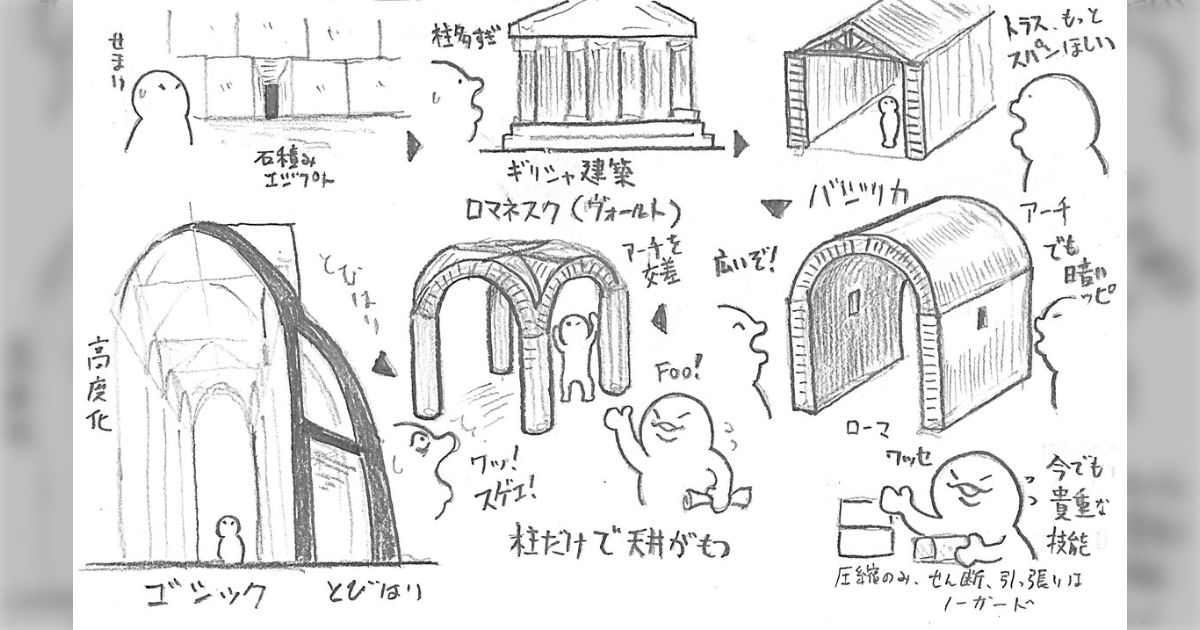 せまい
石積み
エジプト
柱多すぎ
ギリシャ建築
トラス、もっと
スパンほしい
バシリカ
アーチ
でも
暗い
ッピ
広いぞ!
ローマ
ロマネスク(ヴォールト)
アーチを
交差
Foo!
ワッ!
スゲェ!
柱だけで天井がもつ
とびはり
高度化
ゴシック
とびはり
ワッセ
今でも
貴重な
技能
圧縮のみ、せん断、引っ張りは
ノーガード